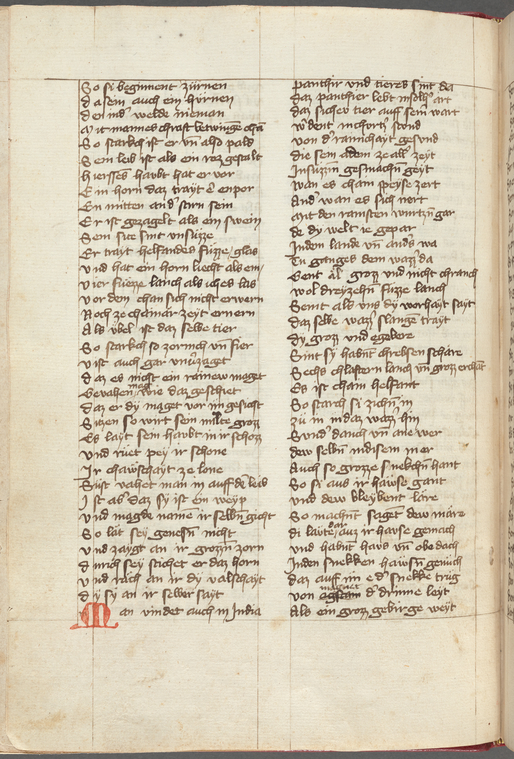 So si begynnent zürnen
da sem auch ein hvrnen
den ind° welde nieman
Mit mannes chrafft betwinge chan
So starckh ist er vn also pald
Sein leb ist als ein roz gestalt
hiersses haubt hat er vor
Ein horn daz trayt e enpor
Ein mitten and° stirn sein
Er ist gezagelt als ein swein
Sein sue sint vnsüzze
Er trayt helfandes füzze / glas
vnd hat ein horn liecht als ein
vier füezze lanch als ich es las
vor dem chan sich nicht erwern
Noch ze chainer zeyt ernern
Als übel ist daz selbe tier
So starckh so zornich vn fier
vist auch gar vnuerzaget
daz es nicht ein rainew maget
Gevahen mag wie daz geschiet
daz er dy maget vor im gesicht
Sitzen so wirt sein milte groz
Es layt sein haubt in ir schozz
vnd ruet pey ir schone
Ir chawschayt ze lone
Sust vahet man in auff der vas
Ist ab daz sy ist ein weyp
vnd magde name ir selbn gicht
So lat sey genesn nicht
vnd zaygt an ir grozzn zorn
durich sey stichet er daz horn
vnd rich an ir dy valschayt
dy sy an ir selber sayt
Man vindet auch in India
panthir vnd tieres sint da
daz panthier lebt in solh° art
daz sicher tier auff sein wart
w°dent in churtz° stund
von d° rainichayt gesund
die sein adem ze all° zeyt
In suzzin gesmachn geyt
wan es cham speyse zert
And° wan es sich nert
mit den rainsten wurtzn gar
de dy welt ie gepar
In dem lande vn and°s wa
In ganges dem wazz° da
Gent Äl grozz vnd nicht chranch
wol dreyzehn füzze lanch
Seint als vns dy warhayt sayt
daz selbe wazz° slangen trayt
dy grozz vnd egebere
Sint sy habnt chrebsen schare
Sechs chlafteren lanch vn grozz erchant
Es ist cham helfant
So starch si zichn in
zu in in daz wazz° hin
Swnd° danch vn ane wer
dew selbn indisem mer
Auch so grozze snekchn hant
So si aus ir hawse gant
vnd dew bleybent lare
So machnt saget dew mare
di läwte dar auz ir hawse gemach
vnd habnt haws vn obedach
In den snekken hawsn genuch
daz auff im e d° snekke trug
von magnet d° drinne leyt
Als ein grozz gebirge weyt